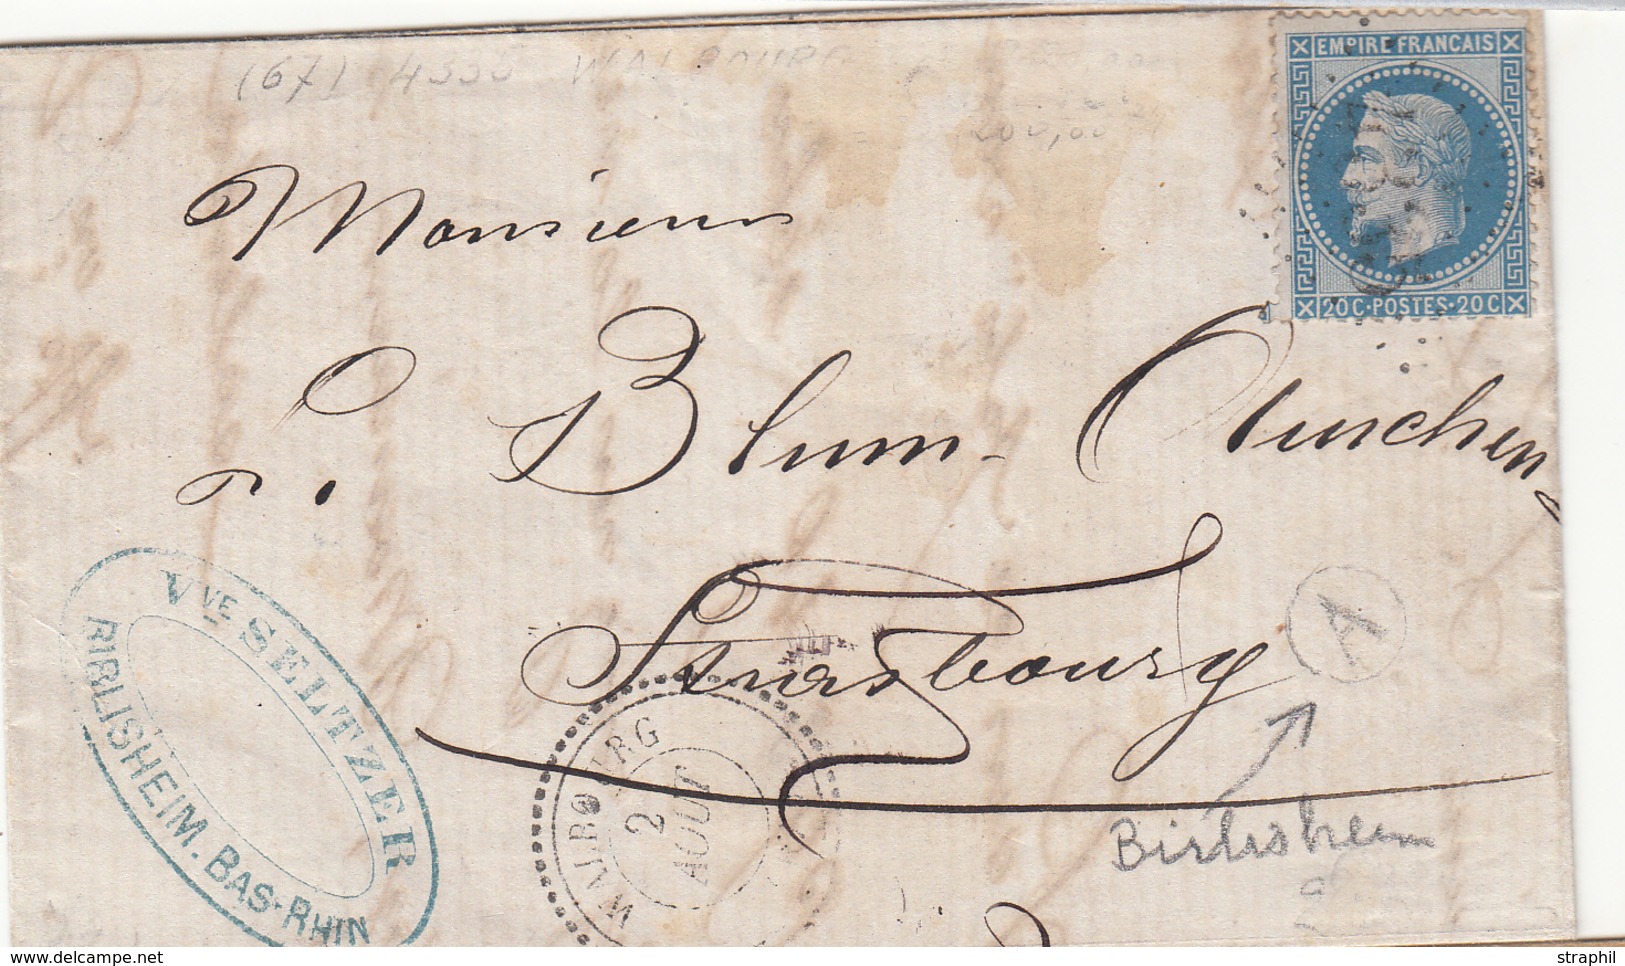 (67) 4338 WALBOURG
200,00
EMPIRE FRANCAIS
20 C · POSTES · 20 C
Monsieur
Blum-Auschen
Strasbourg
A
Birlisheim
VVE SELTZER
BIRLISHEIM. BAS-RHIN
WALBOURG
2
AOUT
www.delcampe.net
straphil